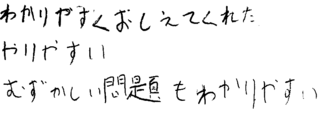 わかりやすくおしえてくれた
やりやすい
むずかしい問題もわかりやすい